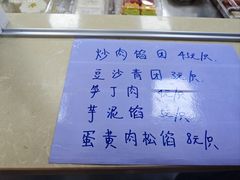 炒肉馅团 4元/只
豆沙青团 3元/只
笋丁肉 元/只
芋泥馅 5元/只
蛋黄肉松馅 8元/只